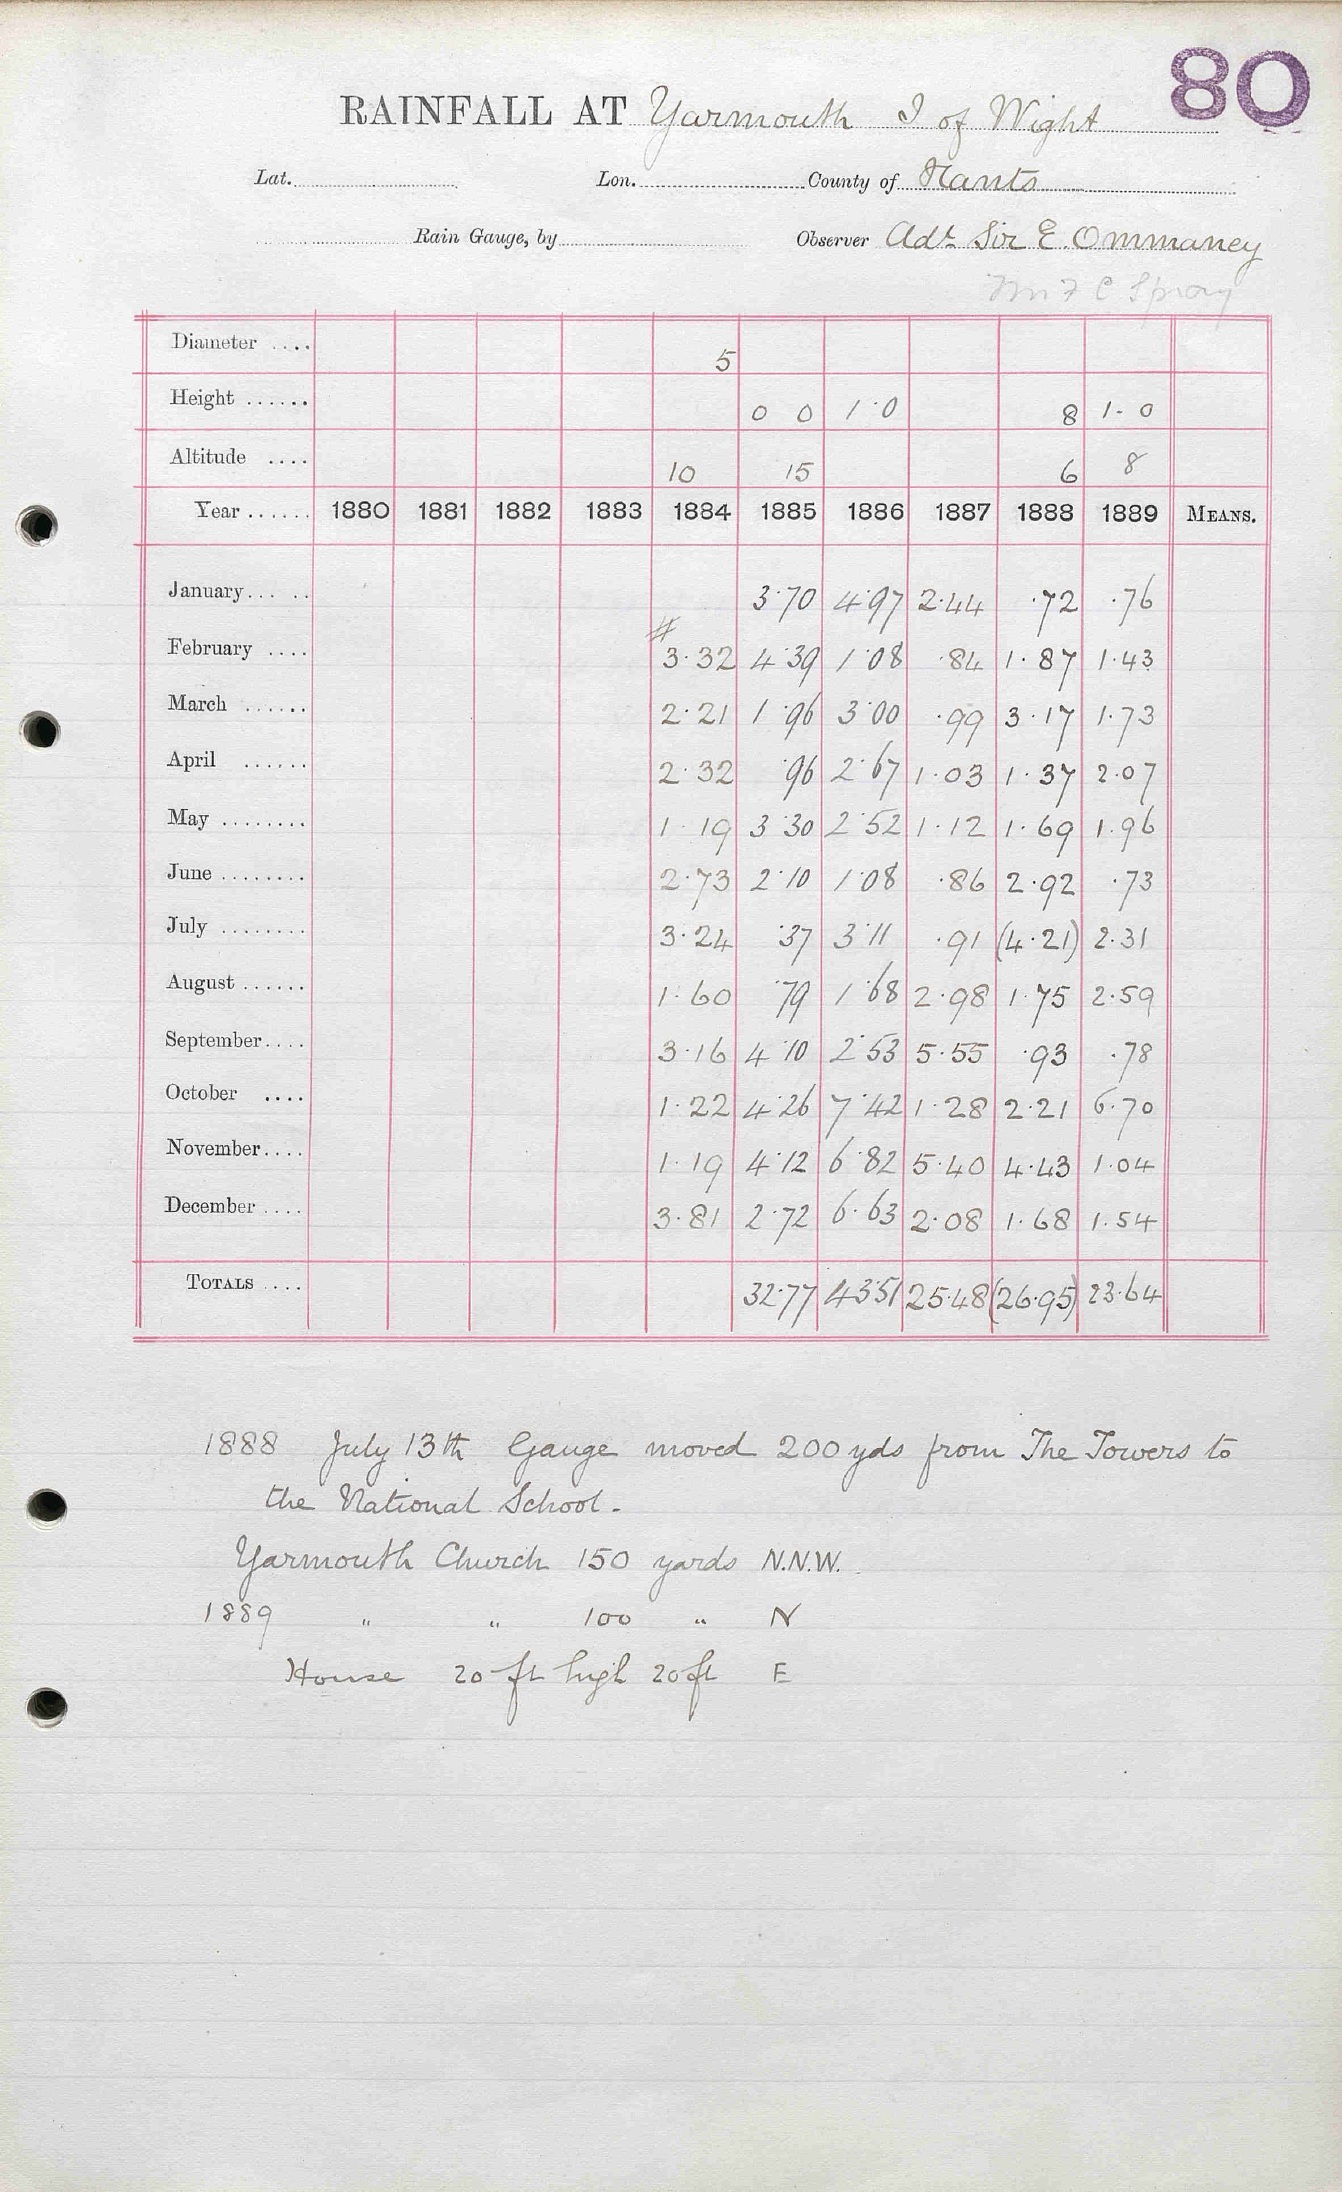 80
RAINFALL AT Yarmouth I of Wight
Lat. Lon. County of Hants
Rain Gauge, by Observer Adl. Sir E. Ommaney
Mr F C Spray
Diameter .... 5
Height ...... 0 0 1·0 8 1·0
Altitude .... 10 15 6 8
Year ...... 1880 1881 1882 1883 1884 1885 1886 1887 1888 1889 MEANS.
January ..... 3·70 4·97 2·44 ·72 ·76
February .... # 3·32 4·39 1·08 ·84 1·87 1·43
March ...... 2·21 1·96 3·00 ·99 3·17 1·73
April ...... 2·32 ·96 2·67 1·03 1·37 2·07
May ........ 1·19 3·30 2·52 1·12 1·69 1·96
June ........ 2·73 2·10 1·08 ·86 2·92 ·73
July ........ 3·24 ·37 3·11 ·91 (4·21) 2·31
August ...... 1·60 ·79 1·68 2·98 1·75 2·59
September .... 3·16 4·10 2·53 5·55 ·93 ·78
October .... 1·22 4·26 7·42 1·28 2·21 6·70
November .... 1·19 4·12 6·82 5·40 4·43 1·04
December .... 3·81 2·72 6·63 2·08 1·68 1·54
TOTALS .... 32·77 43·51 25·48 (26·95) 23·64
1888 July 13th Gauge moved 200 yds from The Towers to
the National School.
Yarmouth Church 150 yards N.N.W.
1889 " " 100 " N
House 20 ft high 20 ft E